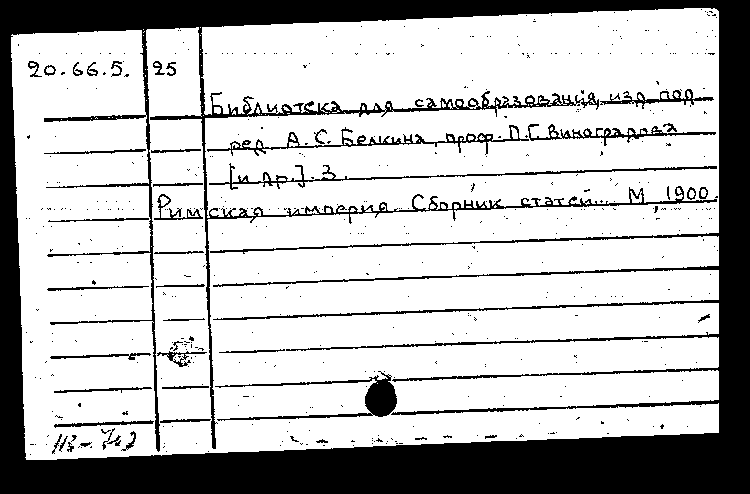 20.66.5. 25
Библиотека для самообразования, изд. под
ред. А. С. Белкина, проф. П. Г. Виноградова
[и др.]. 3.
Римская империя. Сборник статей... М., 1900.